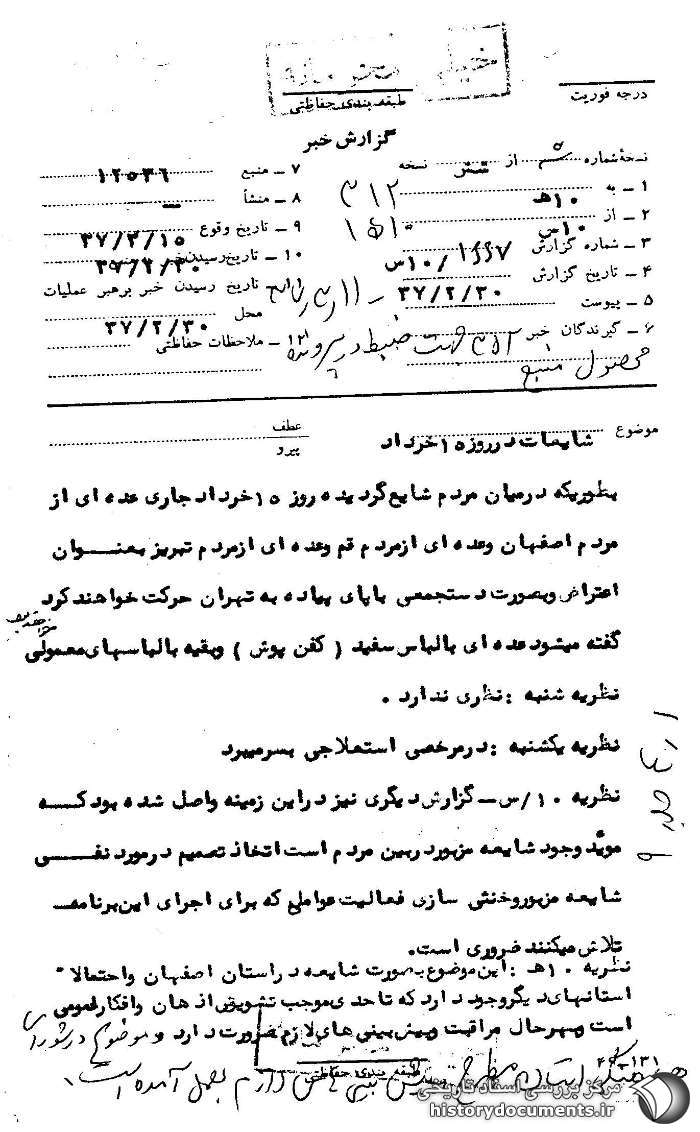 خیلی محرمانه
طبقه بندی حفاظتی
درجه فوریت
گزارش خبر
نسخهٔ شماره ۵ از شش نسخه
۱ - به ۳۱۲
۲ - از ۱۰هـ
۳ - شماره گزارش ۱۰س
۱۰/۱۶۶۷س
۴ - تاریخ گزارش ۳۷/۲/۳۰
۵ - پیوست
۶ - گیرندگان خبر ۳۱۲ جهت ضبط در پرونده
محصول منبع
۷ - منبع ۱۲۵۳۶
۸ - منشأ —
۹ - تاریخ وقوع ۳۷/۳/۱۵
۱۰ - تاریخ رسیدن خبر ۳۷/۲/۳۰
۱۱ - تاریخ رسیدن خبر برهبر عملیات
محل ۳۷/۲/۳۰
۱۲ - ملاحظات حفاظتی
موضوع شایعات در روز ۱۵ خرداد
عطف
پیرو
بطوریکه درمیان مردم شایع گردیده روز ۱۵ خرداد جاری عده ای از
مردم اصفهان وعده ای ازمردم قم وعده ای ازمردم تبریز بعنوان
اعتراض وبصورت دستجمعی باپای پیاده به تهران حرکت خواهند کرد
گفته میشود عده ای بالباس سفید ( کفن پوش ) وبقیه بالباسهای معمولی
نظریه شنبه : نظری ندارد .
نظریه یکشنبه : درمرخصی استعلاجی بسرمیبرد
نظریه ۱۰/س - گزارش دیگری نیز دراین زمینه واصل شده بود که
موید وجود شایعه مزبور دربین مردم است اتخاذ تصمیم درمورد نفی
شایعه مزبور وخنثی سازی فعالیت عواملی که برای اجرای این برنامه
تلاش میکنند ضروری است.
نظریه ۱۰هـ : این موضوع بصورت شایعه در استان اصفهان واحتمالا"
استانهای دیگر وجود دارد که تا حدی موجب تشویق اذهان وافکار عمومی
است وبهرحال مراقبت وپیش بینی های لازم ضرورت دارد و موضوع در شورای
هماهنگی استان مطرح و پیش بینی های لازم بعمل آمده است
طبقه بندی حفاظتی
۴-۱۳۱
مرکز بررسی اسناد تاریخی
historydocuments.ir